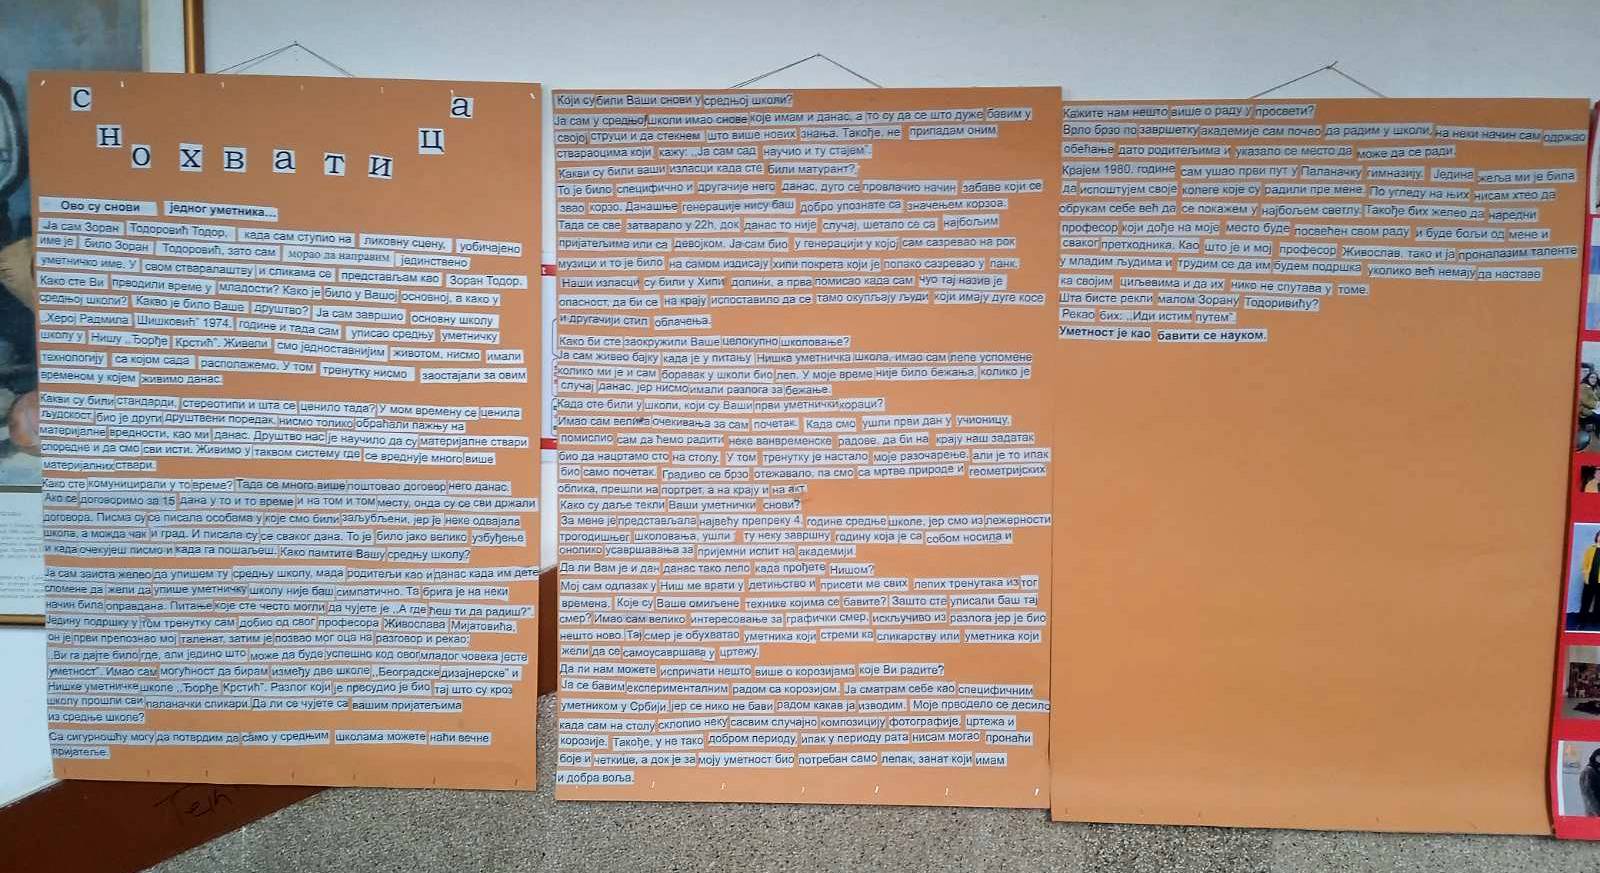 СНОХВАТИЦА
Ово су снови једног уметника...
Ја сам Зоран Тодоровић Тодор, када сам ступио на ликовну сцену, уобичајено
име је било Зоран Тодоровић, зато сам морао да направим јединствено
уметничко име. У свом стваралаштву и сликама се представљам као Зоран Тодор.
Како сте Ви прводили време у младости? Како је било у Вашој основној, а како у
средњој школи? Какво је било Ваше друштво? Ја сам завршио основну школу
„Херој Радмила Шишковић" 1974. године и тада сам уписао средњу уметничку
школу у Нишу ,,Ђорђе Крстић". Живели смо једноставнијим животом, нисмо имали
технологију са којом сада располажемо. У том тренутку нисмо заостајали за овим
временом у којем живимо данас.
Какви су били стандарди, стереотипи и шта се ценило тада? У мом времену се ценила
људскост, био је други друштвени поредак, нисмо толико обраћали пажњу на
материјалне вредности, као ми данас. Друштво нас је научило да су материјалне ствари
споредне и да смо сви исти. Живимо у таквом систему где се вреднује много више
материјалних ствари.
Како сте комуницирали у то време? Тада се много више поштовао договор него данас.
Ако се договоримо за 15 дана у то и то време и на том и том месту, онда су се сви држали
договора. Писма су се писала особама у које смо били заљубљени, јер је неке одвајала
школа, а можда чак и град. И писала су се сваког дана. То је било јако велико узбуђење
и када очекујеш писмо и када га пошаљеш. Како памтите Вашу средњу школу?
Ја сам заиста желео да упишем ту средњу школу, мада родитељи као и данас када им дете
спомене да жели да упише уметничку школу није баш симпатично. Та брига је на неки
начин била оправдана. Питање које сте често могли да чујете је ,,А где ћеш ти да радиш?".
Једину подршку у том тренутку сам добио од свог професора Живослава Мијатовића,
он је први препознао мој таленат, затим је позвао мог оца на разговор и рекао:
,,Ви га дајте било где, али једино што може да буде успешно код овог младог човека јесте
уметност". Имао сам могућност да бирам између две школе ,,Београдске дизајнерске" и
Нишке уметничке школе ,,Ђорђе Крстић". Разлог који је пресудио је био тај што су кроз
школу прошли сви паланачки сликари. Да ли се чујете са вашим пријатељима
из средње школе?
Са сигурношћу могу да потврдим да само у средњим школама можете наћи вечне
пријатеље.
Који су били Ваши снови у средњој школи?
Ја сам у средњој школи имао снове које имам и данас, а то су да се што дуже бавим у
својој струци и да стекнем што више нових знања. Такође, не припадам оним
ствараоцима који кажу: ,,Ја сам сад научио и ту стајем".
Какви су били ваши изласци када сте били матурант?
То је било специфично и другачије него данас, дуго се провлачио начин забаве који се
звао корзо. Данашње генерације нису баш добро упознате са значењем корзоа.
Тада се све затварало у 22h, док данас то није случај, шетало се са најбољим
пријатељима или са девојком. Ја сам био у генерацији у којој сам сазревао на рок
музици и то је било на самом издисају хипи покрета који је полако сазревао у панк.
Наши изласци су били у Хипи долини, а прва помисао када сам чуо тај назив је
опасност, да би се на крају испоставило да се тамо окупљају људи који имају дуге косе
и другачији стил облачења.
Како би сте заокружили Ваше целокупно школовање?
Ја сам живео бајку када је у питању Нишка уметничка школа, имао сам лепе успомене
колико ми је и сам боравак у школи био леп. У моје време није било бежања, колико је
случај данас, јер нисмо имали разлога за бежање.
Када сте били у школи, који су Ваши први уметнички кораци?
Имао сам велика очекивања за сам почетак. Када смо ушли први дан у учионицу,
помислио сам да ћемо радити неке ванвременске радове, да би на крају наш задатак
био да нацртамо сто на столу. У том тренутку је настало моје разочарење, али је то ипак
био само почетак. Градиво се брзо отежавало, па смо са мртве природе и геометријских
облика, прешли на портрет, а на крају и на акт.
Како су даље текли Ваши уметнички снови?
За мене је представљала највећу препреку 4. године средње школе, јер смо из лежерности
трогодишњег школовања, ушли у ту неку завршну годину која је са собом носила и
онолико усавршавања за пријемни испит на академији.
Да ли Вам је и дан данас тако лепо када прођете Нишом?
Мој сам одлазак у Ниш ме врати у детињство и присети ме свих лепих тренутака из тог
времена. Које су Ваше омиљене технике којима се бавите? Зашто сте уписали баш тај
смер? Имао сам велико интересовање за графички смер, искључиво из разлога јер је био
нешто ново. Тај смер је обухватао уметника који стреми ка сликарству или уметника који
жели да се самоусавршава у цртежу.
Да ли нам можете испричати нешто више о корозијама које Ви радите?
Ја се бавим експерименталним радом са корозијом. Ја сматрам себе као специфичним
уметником у Србији, јер се нико не бави радом какав ја изводим. Моје прводело се десило
када сам на столу склопио неку сасвим случајно композицију фотографије, цртежа и
корозије. Такође, у не тако добром периоду, ипак у периоду рата нисам могао пронаћи
боје и четкице, а док је за моју уметност био потребан само лепак, занат који имам
и добра воља.
Кажите нам нешто више о раду у просвети?
Врло брзо по завршетку академије сам почео да радим у школи, на неки начин сам одржао
обећање дато родитељима и указало се место да може да се ради.
Крајем 1980. године сам ушао први пут у Паланачку гимназију. Једина жеља ми је била
да испоштујем своје колеге које су радили пре мене. По угледу на њих нисам хтео да
обрукам себе већ да се покажем у најбољем светлу. Такође бих желео да наредни
професор који дође на моје место буде посвећен свом раду и буде бољи од мене и
сваког претходника. Као што је и мој професор Живослав, тако и ја проналазим таленте
у младим људима и трудим се да им будем подршка уколико већ немају да наставе
ка својим циљевима и да их нико не спутава у томе.
Шта бисте рекли малом Зорану Тодоривићу?
Рекао бих: ,,Иди истим путем"
Уметност је као бавити се науком.